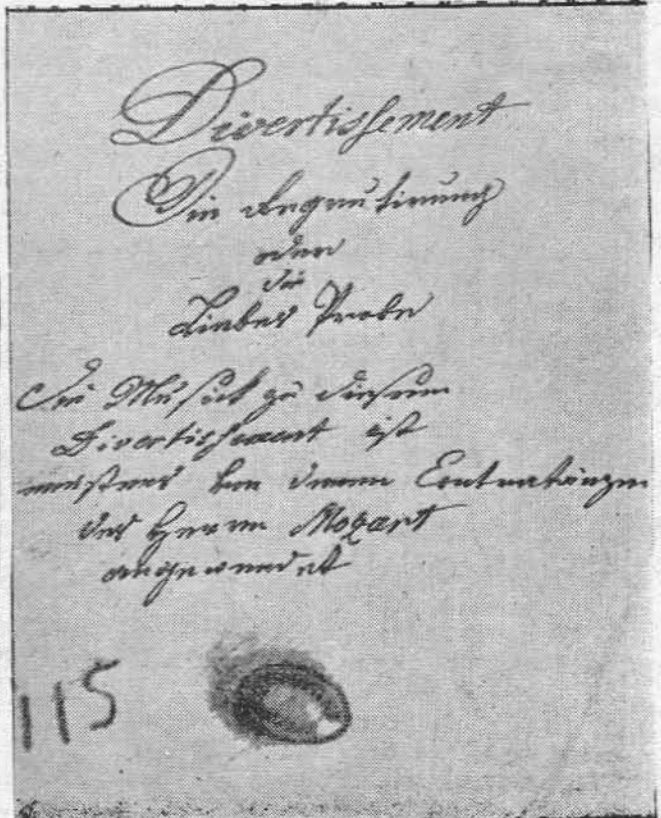 Divertissement
Die Regrutirung
oder
die
Liebes Probe
Die Musick zu diesem
Divertissement ist
meistens von denen Contratänzen
des Herrn Mozart
angewendet
115